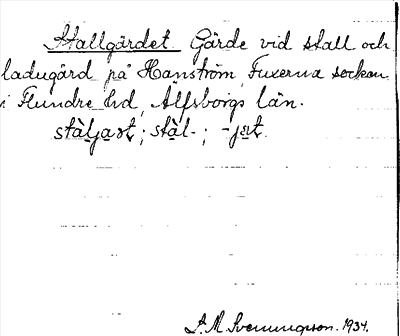 Stallgärdet Gärde vid stall och
ladugård på Hanström, Fuxerna socken
i Flundre hd, Älfsborgs län.
stàljaṣt; stàl-; -jaṣt.
S. M. Svenungsson. 1934.